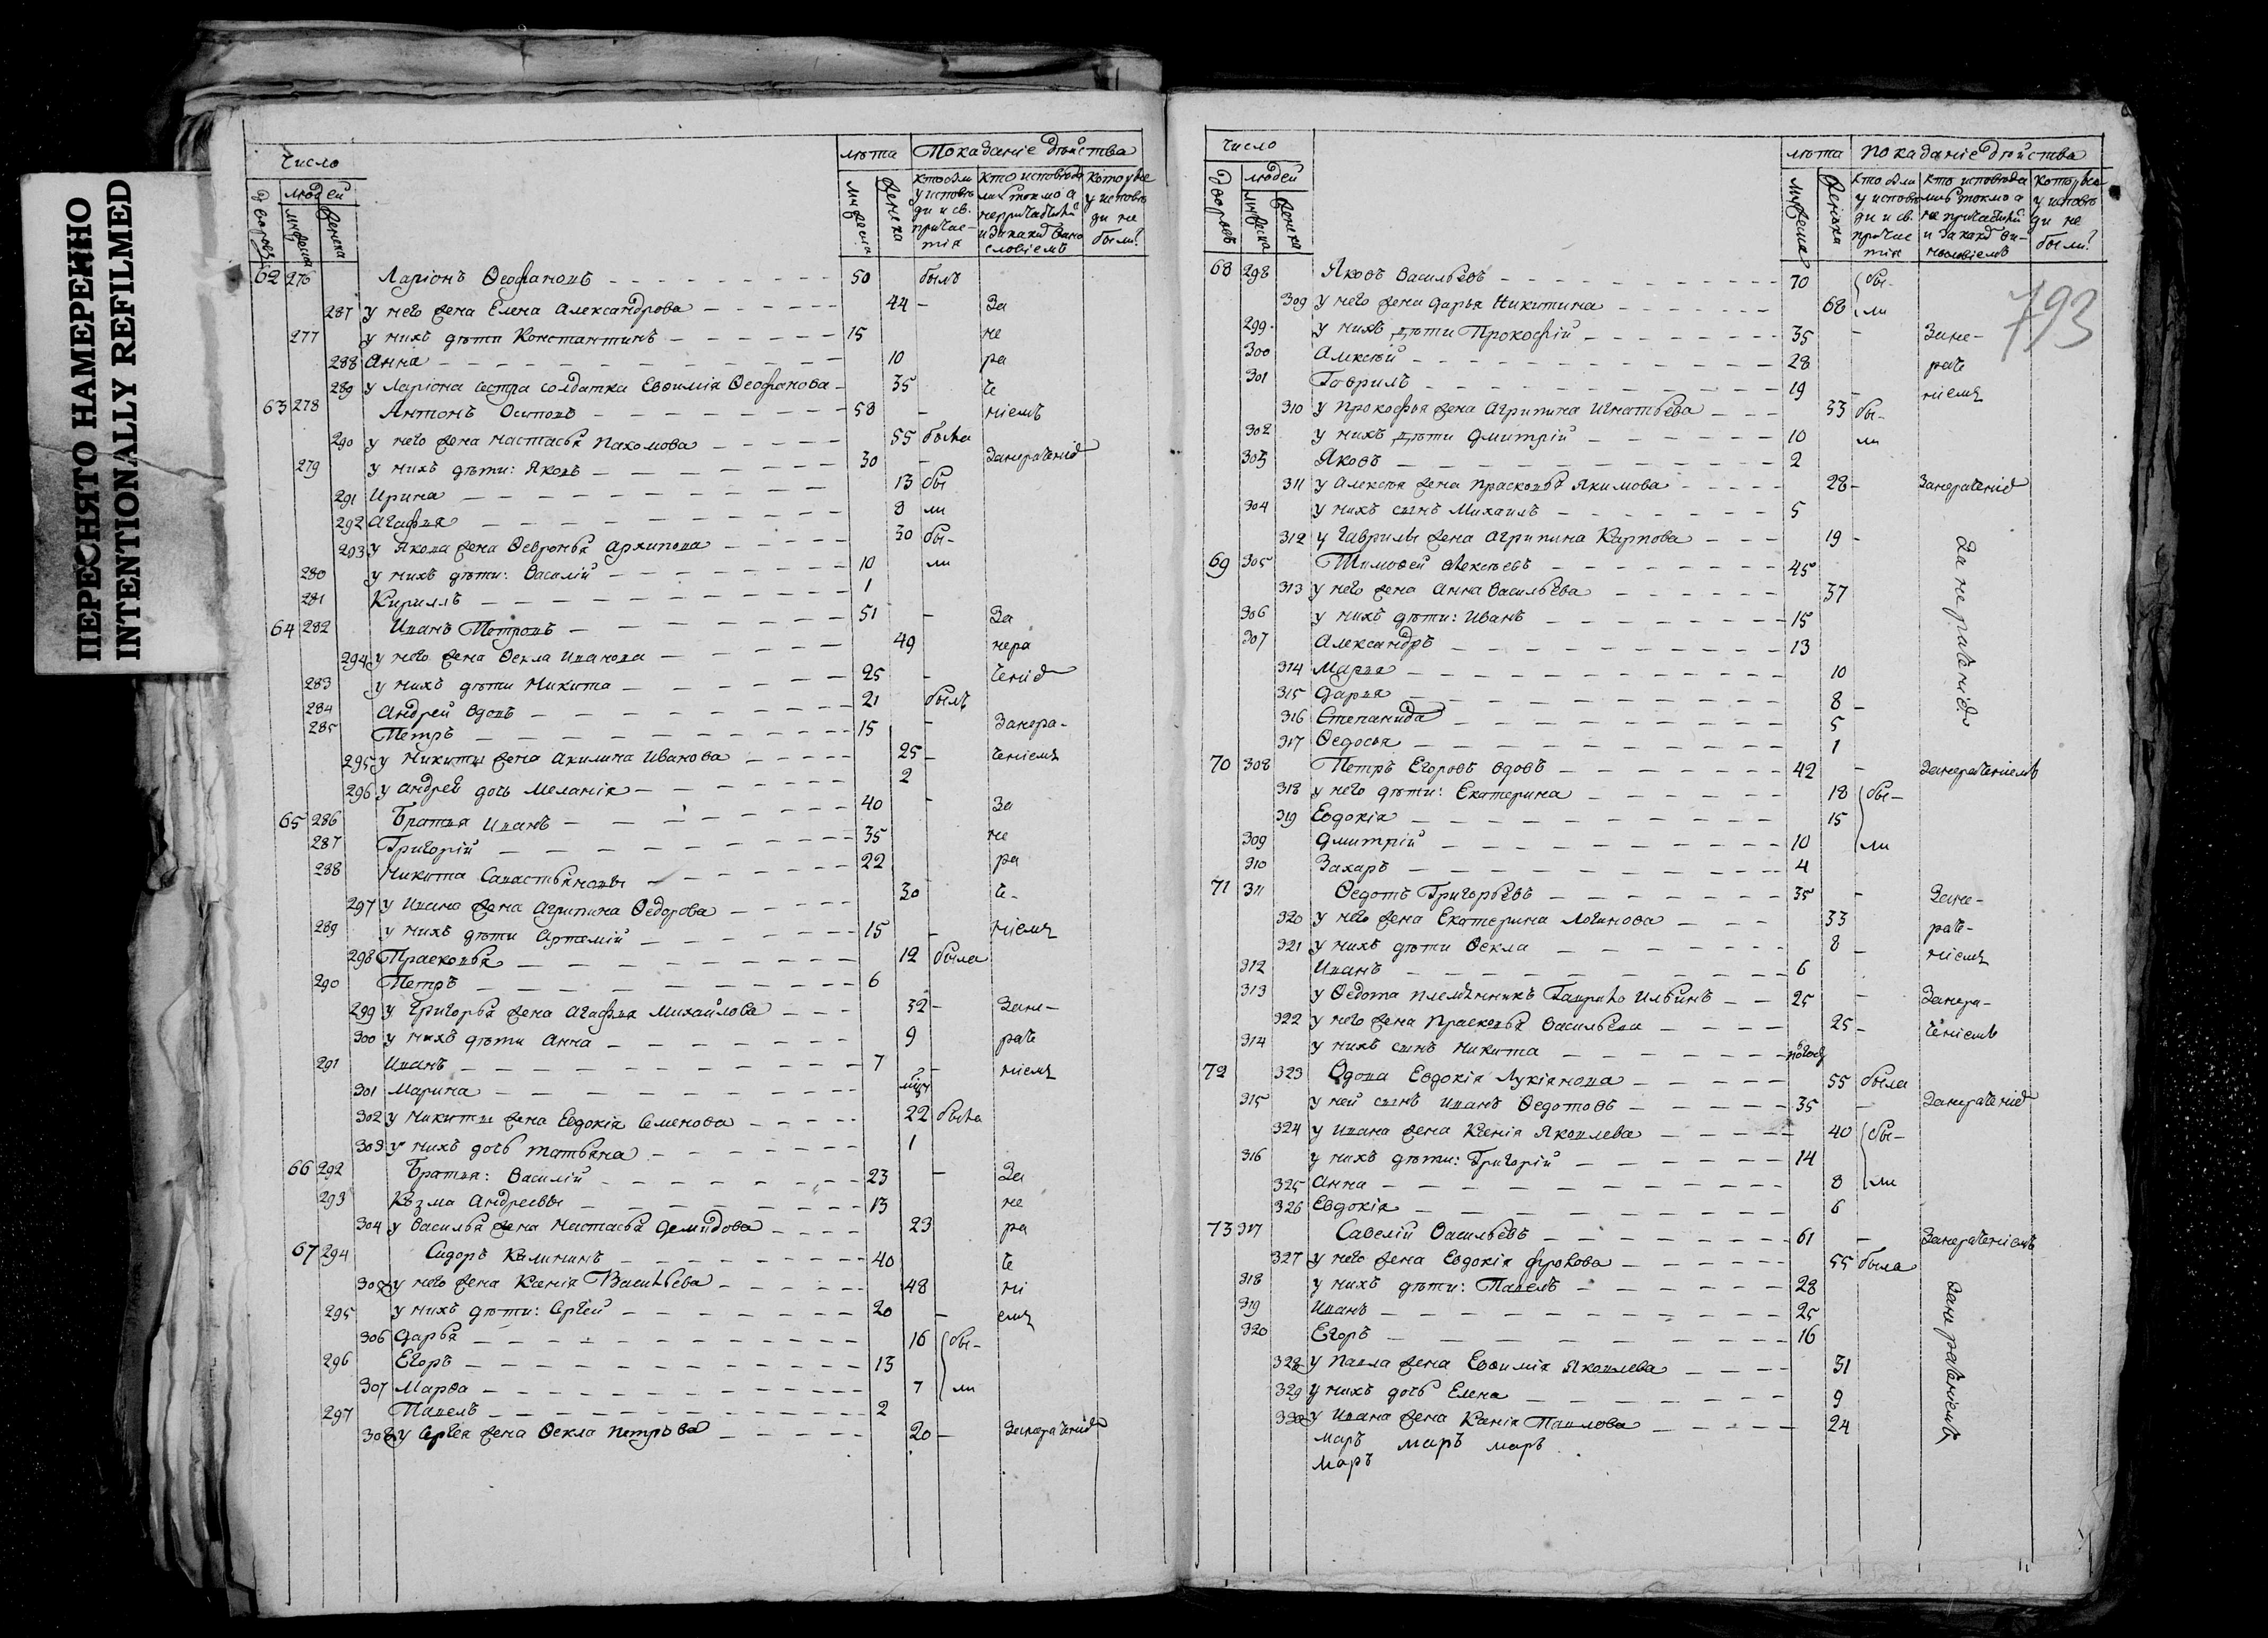 ПЕРЕСНЯТО НАМЕРЕННО
INTENTIONALLY REFILMED
Число лѣта Показаніе дѣйства
дворовъ людей мужеска женска
мужеска женска
кто были у исповѣди и св. причастія
которые у исповѣди не были?
62 276 Ларіонъ Ѳеофановъ 50 былъ
287 у него жена Елена Александрова 44 - За
277 у нихъ дѣти Константинъ 15 не
288 Анна 10 ра
289 у Ларіона сестра солдатка Евѳимія Ѳеофанова 35 че
63 278 Антонъ Осиповъ 58 - ніемъ
290 у него жена Настасья Пахомова 55 была
279 у нихъ дѣти: Яковъ 30 - Занераченіе
291 Ирина 13 бы
292 Агафья 8 ли
293 у Якова жена Ѳевронья Архипова 30 бы-
280 у нихъ дѣти: Василій 10 ли
281 Кириллъ 1
64 282 Иванъ Петровъ 51 - За
294 у него жена Ѳекла Иванова 49 нера
283 у нихъ дѣти Никита 25 - ченіе
284 Андрей вдовъ 21 былъ
285 Петръ 15 - Занера-
295 у Никиты жена Акилина Иванова 25 - ченіемъ
296 у Андрея дочь Меланія 2
65 286 Братья Иванъ 40 - За
287 Григорій 35 не
288 Никита Савастьяновы 22 ра
297 у Ивана жена Агрипина Ѳедорова 30 че-
289 у нихъ дѣти Артемій 15 - ніемъ
298 Прасковья 12 была
290 Петръ 6
299 у Григорья жена Агафья Михайлова 32 - Зане-
300 у нихъ дѣти Анна 9 раче
291 Иванъ 7 - ніемъ
301 Марина
302 у Никиты жена Евдокія Семенова 22 была
303 у нихъ дочь Татьяна 1
66 292 Братья: Василій 23 - За
293 Козма Андреевы 13 не
304 у Василья жена Настасья Демидова 23 ра
67 294 Сидоръ Калининъ 40 че
305 у него жена Ксенія Васильева 48 ні
295 у нихъ дѣти: Сергѣй 20 - емъ
306 Дарья 16 бы-
296 Егоръ 13
307 Марѳа 7 ли
297 Павелъ 2
308 у Сергѣя жена Ѳекла Петрова 20 - Занераченіе
793
Число лѣта показаніе дѣйства
дворовъ людей мужеска женска
мужеска женска
кто были у исповѣди и св. причастія
которые у исповѣди не были?
68 298 Яковъ Васильевъ 70 бы-
309 у него жена Дарья Никитина 68 ли
299 у нихъ дѣти Прокофій 35 - Зане-
300 Алексѣй 28 раче
301 Гаврилъ 19 - ніемъ
310 у Прокофья жена Агрипина Игнатьева 33 бы-
302 у нихъ дѣти Дмитрій 10 ли
303 Яковъ 2
311 у Алексѣя жена Прасковья Якимова 28 - Занераченіе
304 у нихъ сынъ Михаилъ 5
312 у Гаврилы жена Агрипина Карпова 19 -
69 305 Тимоѳей Алексѣевъ 45
313 у него жена Анна Васильева 37
306 у нихъ дѣти: Иванъ 15
307 Александръ 13
314 Марья 10
315 Дарья 8 -
316 Степанида 5
317 Ѳедосья 1
Занераченіе
70 308 Петръ Егоровъ вдовъ 42 - Занераченіемъ
318 у него дѣти: Екатерина 18 бы-
319 Евдокія 15
309 Дмитрій 10 ли
310 Захаръ 4
71 311 Ѳедотъ Григорьевъ 35 - Зане-
320 у него жена Екатерина Логинова 33 раче-
321 у нихъ дѣти Ѳекла 8 - ніемъ
312 Иванъ 6
313 у Ѳедота племянникъ Гаврило Ильинъ 25 - Занера-
322 у него жена Прасковья Васильева 25 - ченіемъ
314 у нихъ сынъ Никита
72 323 Вдова Евдокія Лукіянова 55 была
315 у ней сынъ Иванъ Ѳедотовъ 35 - Занераченіе
324 у Ивана жена Ксенія Яковлева 40 бы-
316 у нихъ дѣти: Григорій 14
325 Анна 8 ли
326 Евдокія 6
73 317 Савелій Васильевъ 61 - Занераченіемъ
327 у него жена Евдокія Фролова 55 была
318 у нихъ дѣти: Павелъ 28
319 Иванъ 25
320 Егоръ 16
328 у Павла жена Евѳимія Яковлева 31
329 у нихъ дочь Елена 9
330 у Ивана жена Ксенія Павлова 24
Занераченіемъ
маръ маръ маръ
маръ